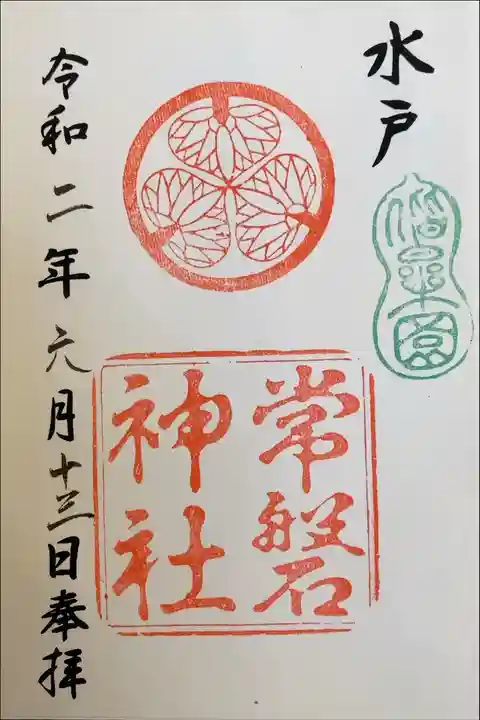 水戸
偕楽園
常磐
神社
令和二年六月十三日奉拝